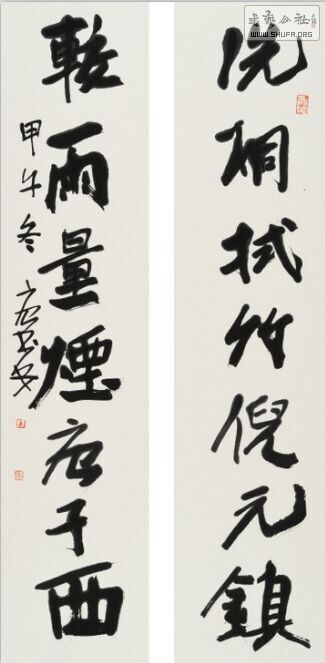 洗桐拭竹倪元鎮
較雨量煙唐子西
甲午冬
書藝公社
WWW.SHUFA.ORG